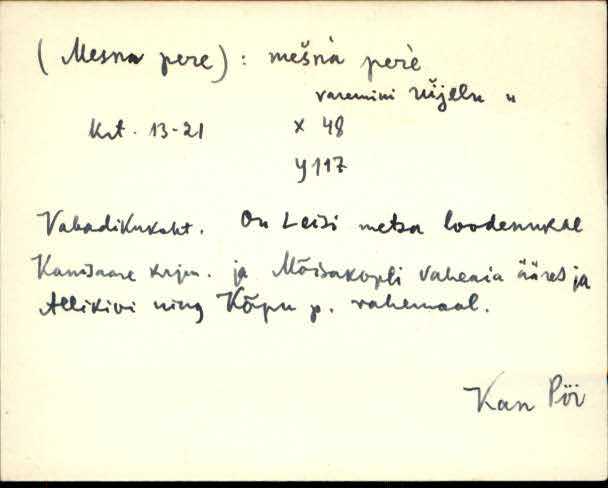 (Mesna pere): mešna pere
varemini Rüjelu "
krt. 13-21 x 48
y 117
Vabadikukoht. On Leisi metsa loodenukal
Kansaare karjm. ja Mõisakopli vaheaia ääres ja
Allikivi ning Kõpu p. vahemaal.
Kan Pöi